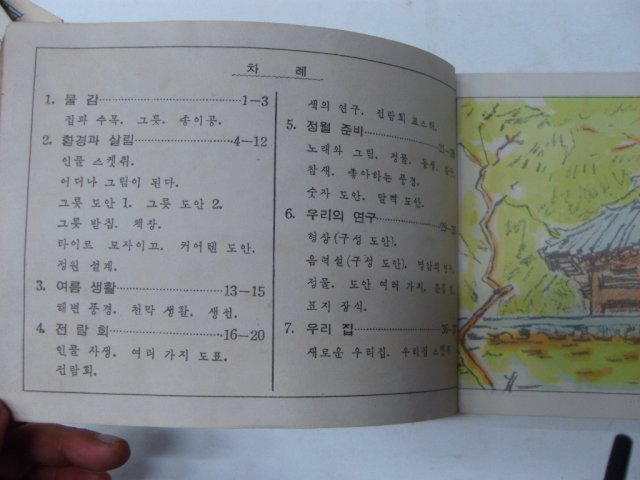 차 례
1. 물 감 1-3
집과 수목. 그릇. 송이꽁.
2. 환경과 살림 4-12
인물 스켓취.
어디나 그림이 된다.
그릇 도안 1. 그릇 도안 2.
그릇 받침. 책장.
타이르 모자이끄. 커어텐 도안.
정원 설계.
3. 여름 생활 13-15
해변 풍경. 천막 생활. 생선.
4. 전 람 회 16-20
인물 사생. 여러 가지 도표.
전람회.
색의 연구. 전람회 포스터.
5. 정월 준비
노래와 그림. 정물.
참새. 좋아하는 풍경.
숫자 도안. 달력 도안.
6. 우리의 연구
형상(구성 도안).
음력설(구성 도안).
정물. 도안 여러 가지.
표지 장식.
7. 우리 집
새로운 우리집. 우리집 스켓취